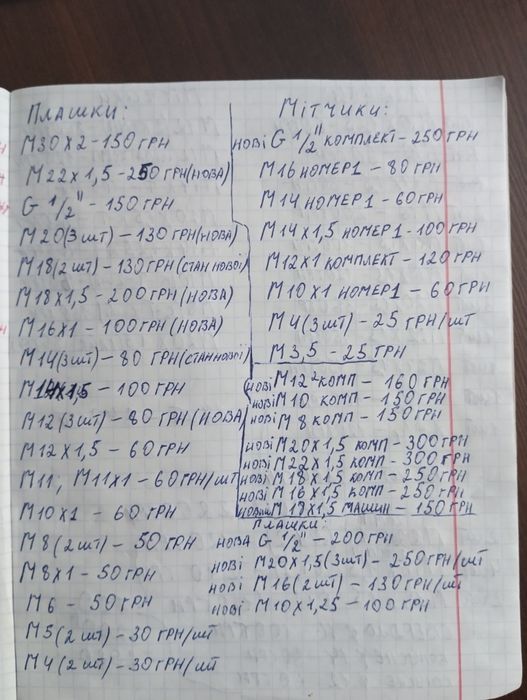 Плашки:
М30х2-150грн
М22х1,5-250грн(нова)
G 1/2" - 150грн
М20(3шт) - 130грн(нова)
М18(2шт) - 130грн(стан нової)
М18х1,5 - 200грн(нова)
М16х1 - 100грн(нова)
М14(3шт) - 80грн(стан нової)
М14х1,5 - 100грн
М12(3шт) - 80грн(нова)
М12х1,5 - 60грн
М11, М11х1 - 60грн/шт
М10х1 - 60грн
М8(2шт) - 50грн
М8х1 - 50грн
М6 - 50грн
М5(2шт) - 30грн/шт
М4(2шт) - 30грн/шт
Мітчики:
нові G 1/2" комплект - 250грн
М16 номер1 - 80грн
М14 номер1 - 60грн
М14х1,5 номер1 - 100грн
М12х1 комплект - 120грн
М10х1 номер1 - 60грн
М4(3шт) - 25грн/шт
М3,5 - 25грн
нові М12 комп - 160грн
нові М10 комп - 150грн
нові М8 комп - 150грн
нові М20х1,5 комп - 300грн
нові М22х1,5 комп - 300грн
нові М18х1,5 комп - 250грн
нові М16х1,5 комп - 250грн
х1,5 машин - 150грн
Плашки:
нова G 1/2" - 200грн
нові М20х1,5(3шт) - 250грн/шт
нові М16(2шт) - 130грн/шт
нові М10х1,25 - 100грн